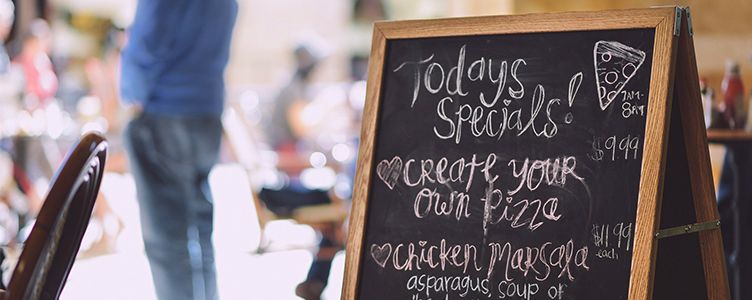 Today's
Specials!
7AM-
8PM
$9.99
CREATE YOUR
OWN PIZZA
$11.99
each
CHICKEN MARSALA
asparagus, soup of